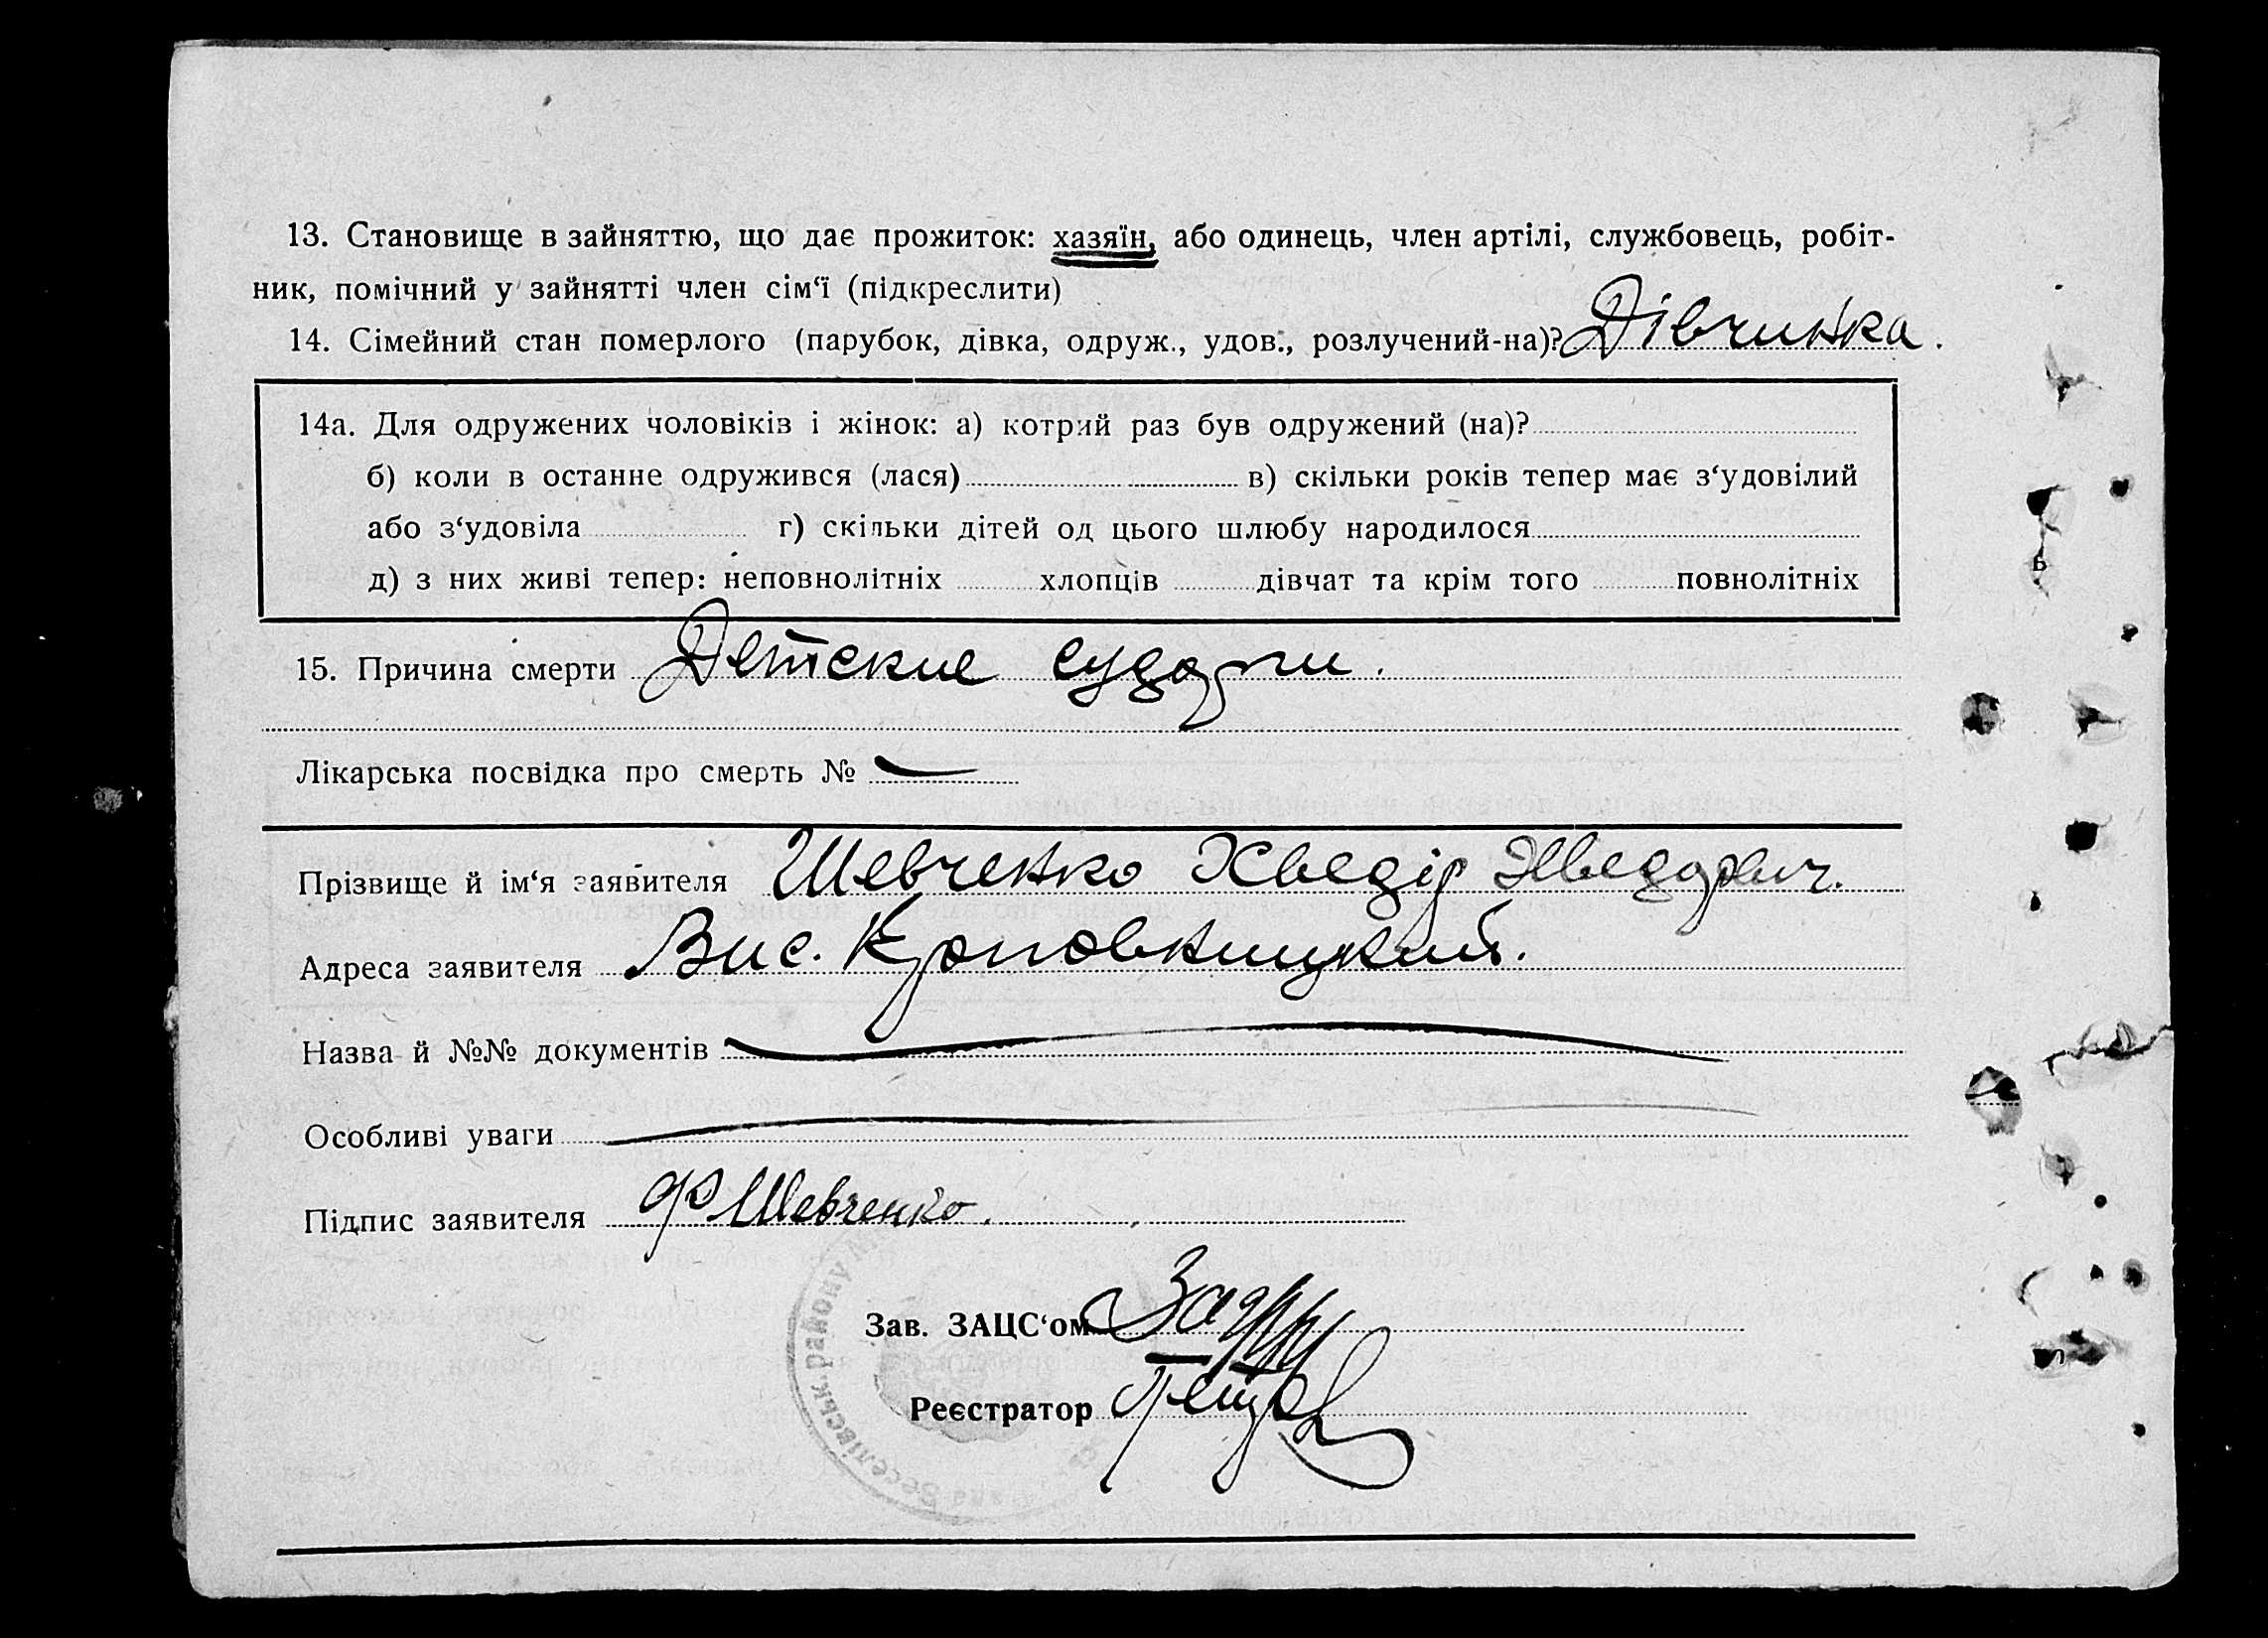 13. Становище в зайняттю, що дає прожиток: хазяїн, або одинець, член артілі, службовець, робіт-
ник, помічний у зайнятті член сім‘ї (підкреслити)
14. Сімейний стан померлого (парубок, дівка, одруж., удов., розлучений-на)? Дівчинка.
14а. Для одружених чоловіків і жінок: а) котрий раз був одружений (на)?
б) коли в останне одружився (лася) в) скільки років тепер має з‘удовілий
або з‘удовіла г) скільки дітей од цього шлюбу народилося
д) з них живі тепер: неповнолітніх хлопців дівчат та крім того повнолітніх
15. Причина смерти Детские судорги.
Лікарська посвідка про смерть № —
Прізвище й ім‘я заявителя Шевченко Хведір Хведорович.
Адреса заявителя Вис. Кроповницкий.
Назва й №№ документів
Особливі уваги
Підпис заявителя Ф Шевченко.
Зав. ЗАЦС‘ом
Реєстратор
Веселівськ. району